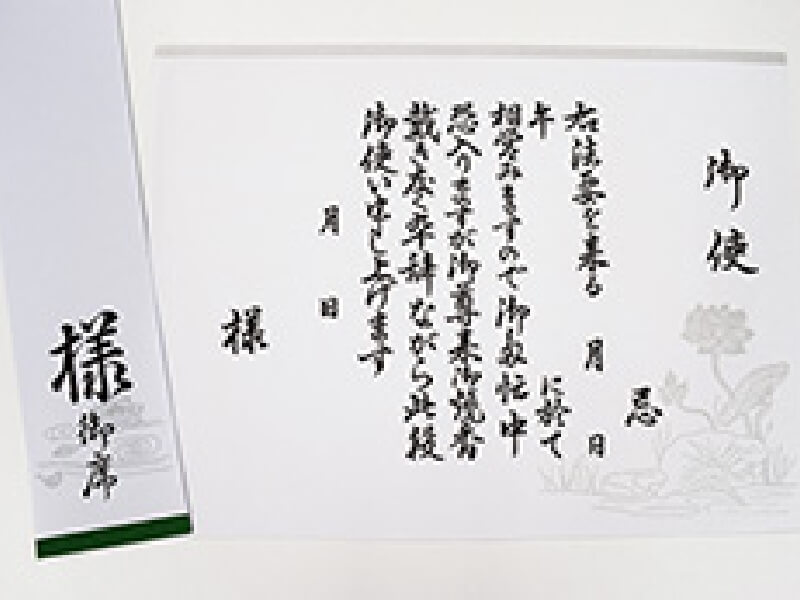 御使
忌
右法要を来る 月 日
午 に於て
相営みますので御多忙中
恐入りますが御尊来御焼香
戴き度く卒辞ながら此段
御使い申し上げます
月 日
様
様
御席